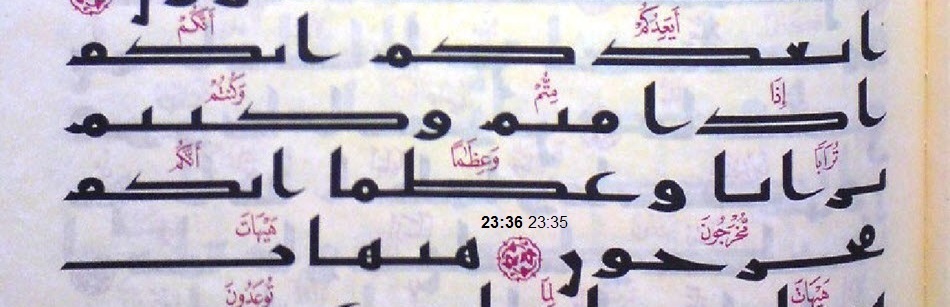 أَيَعِدُكُمْ أَنَّكُمْ
ايعدكم انكم
إِذَا مِتُّمْ وَكُنتُمْ
اذا متم وكنتم
تُرَابًا وَعِظَٰمًا أَنَّكُم
ترابا وعظما انكم
مُّخْرَجُونَ 23:36 23:35 هَيْهَاتَ
مخرجون هيهات
هَيْهَاتَ لِمَا تُوعَدُونَ